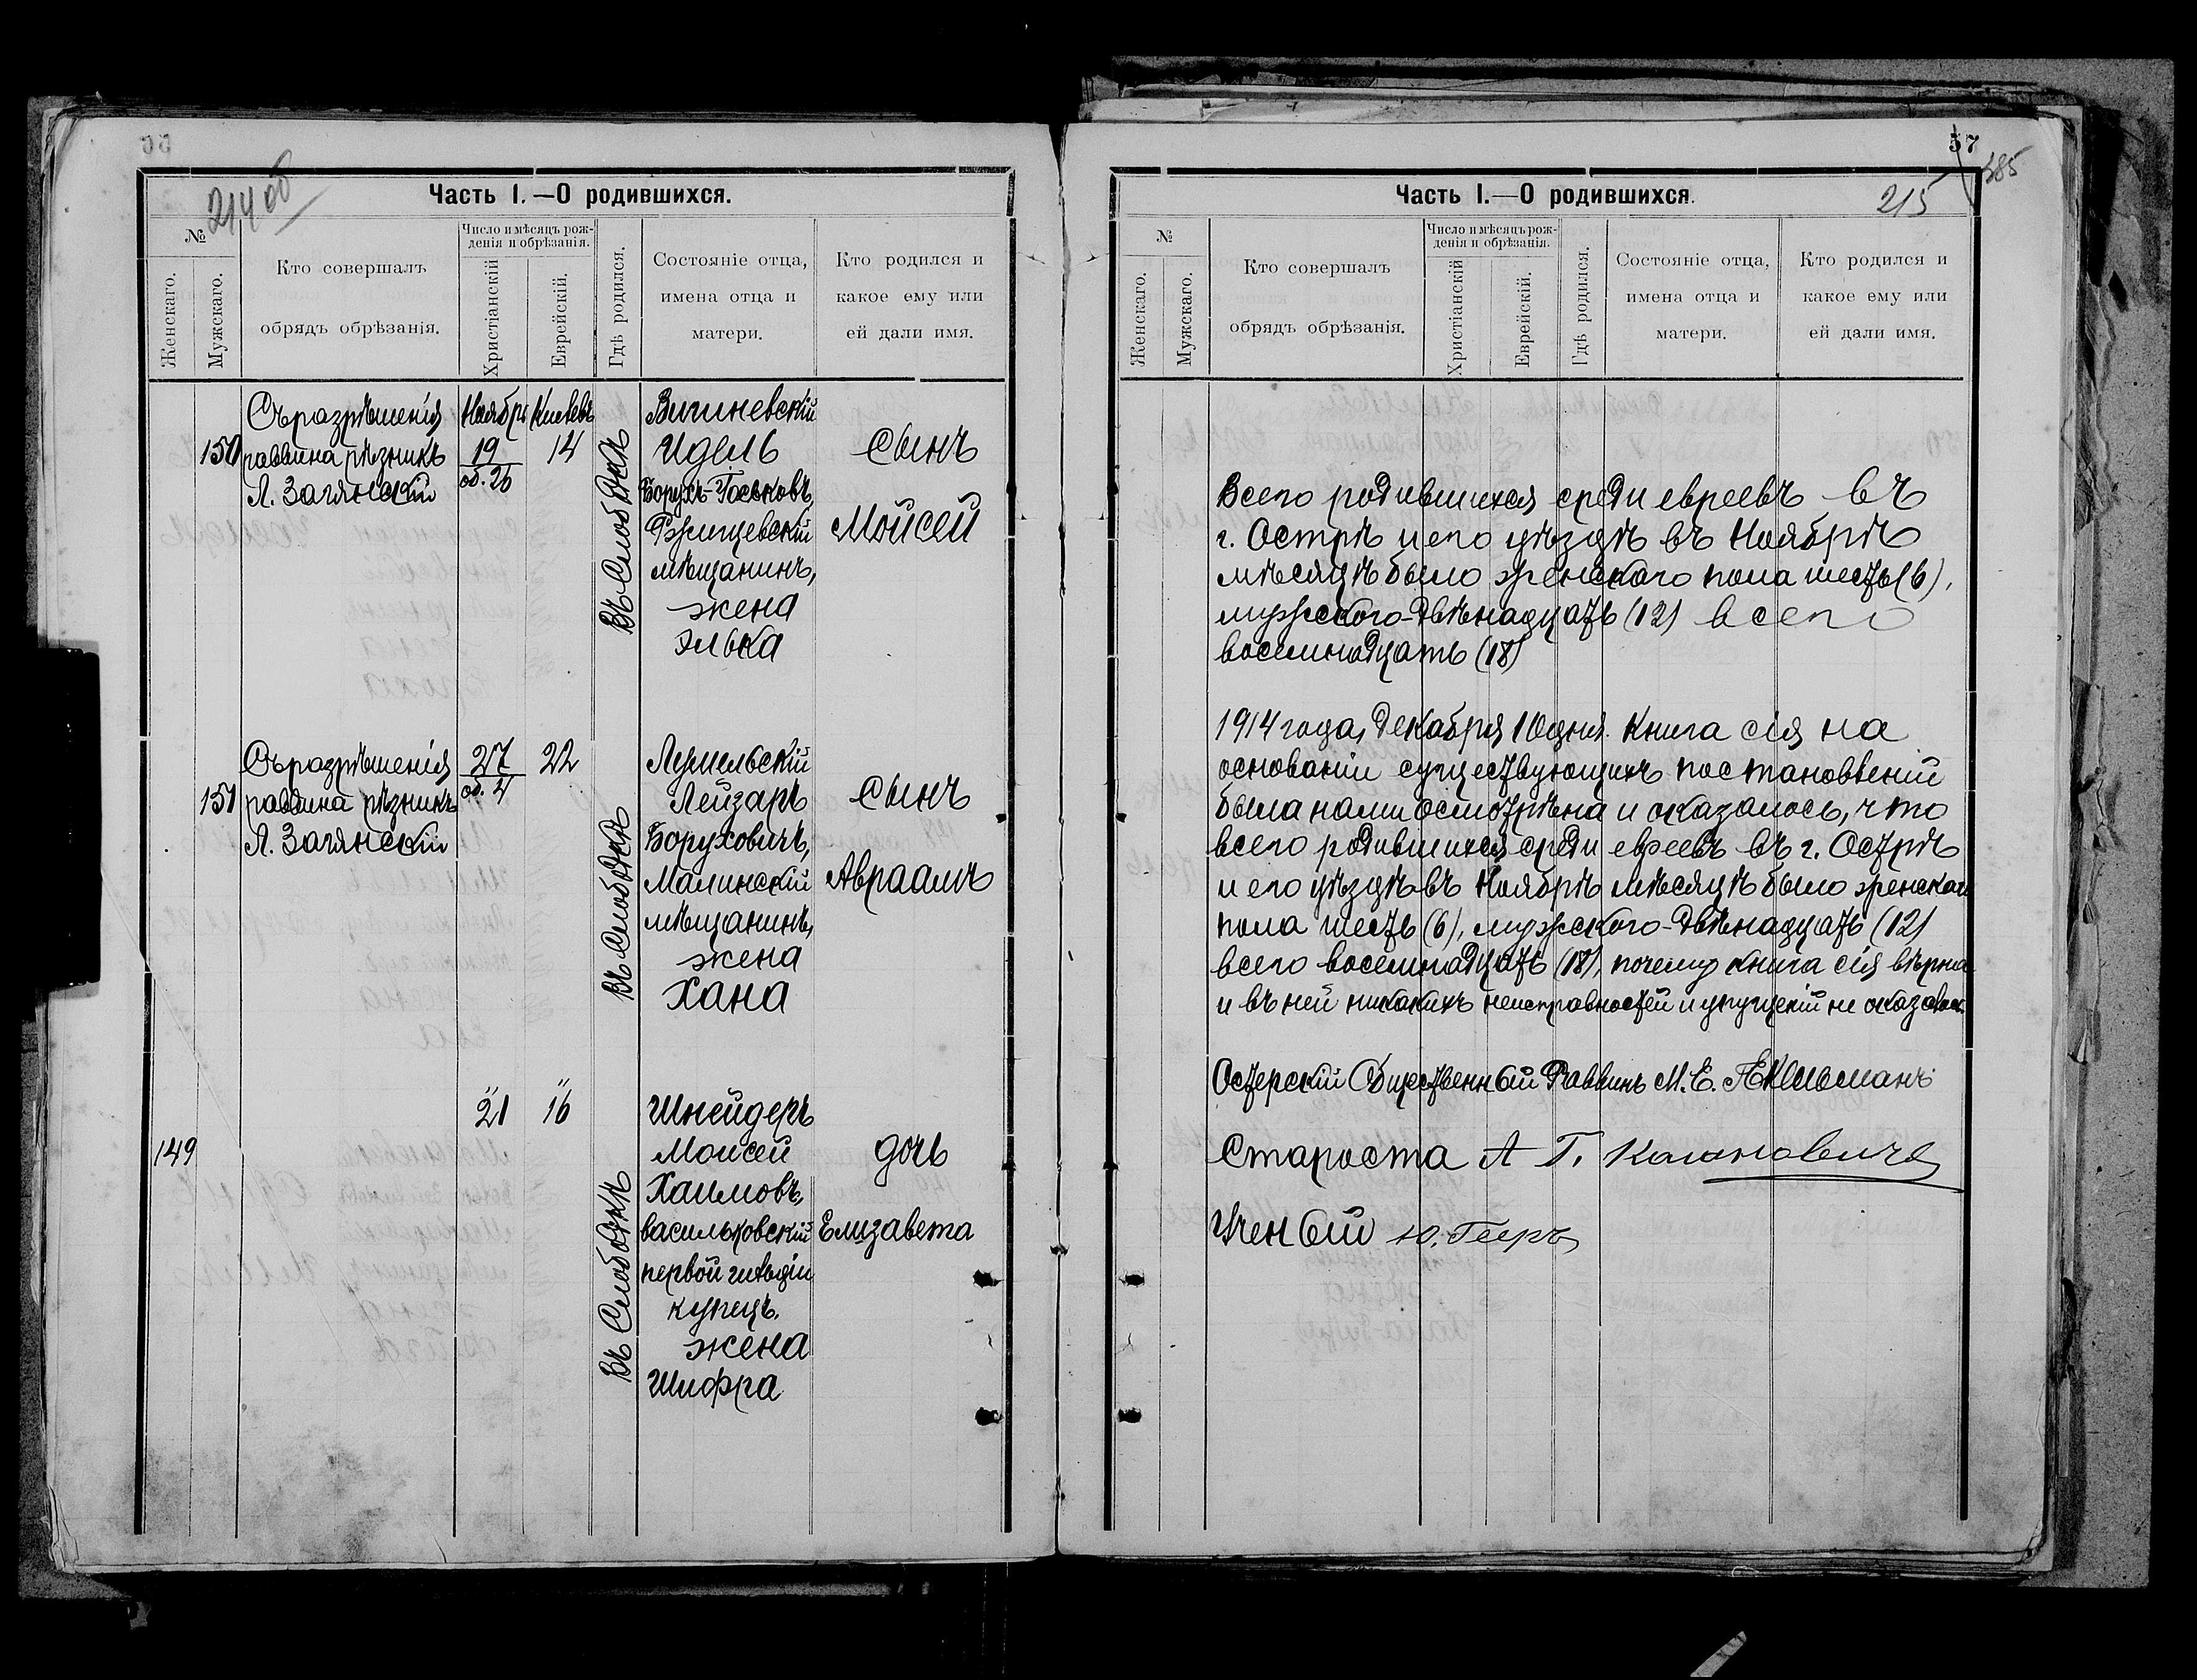 214 об
Часть I.—О родившихся.
№
Женскаго.
Мужскаго.
Кто совершалъ
обрядъ обрѣзанія.
Число и мѣсяцъ рож-
денія и обрѣзанія.
Христіанскій
Еврейскій.
Гдѣ родился.
Состояніе отца,
имена отца и
матери.
Кто родился и
какое ему или
ей дали имя.
150
Съ разрѣшенія
раввина рѣзникъ
Л. Загянскій
Ноябрь
19
об. 26
Кислевъ
14
Въ Слободкѣ
Вигиневскій
Идель
Борухъ-Госьковъ,
Ржищевскій
мѣщанинъ,
жена
Элька
сынъ
Мойсей
151
Съ разрѣшенія
раввина рѣзникъ
Л. Загянскій
27
об. 4
22
Въ Слободкѣ
Лумельскій
Лейзаръ
Боруховичъ,
Малинскій
мѣщанинъ,
жена
Хана
сынъ
Авраамъ
149
" "
21 16
Въ Слободкѣ
Шнейдеръ
Моисей
Хаимовъ,
васильковскій
первой гильдіи
купецъ.
жена
Шифра
дочь
Елизавета
57
385
215
Часть I.—О родившихся.
№
Женскаго.
Мужскаго.
Кто совершалъ
обрядъ обрѣзанія.
Число и мѣсяцъ рож-
денія и обрѣзанія.
Христіанскій
Еврейскій.
Гдѣ родился.
Состояніе отца,
имена отца и
матери.
Кто родился и
какое ему или
ей дали имя.
Всего родившихся среди евреевъ въ
г. Острѣ и его уѣздѣ въ Ноябрѣ
мѣсяцѣ было женскаго пола шесть (6),
мужского-двѣнадцать (12) всего
восемнадцать (18)
1914 года, Декабря 10 дня. Книга сія на
основаніи существующихъ постановленій
была нами осмотрѣна и оказалось, что
всего родившихся среди евреевъ въ г. Острѣ
и его уѣздѣ въ Ноябрѣ мѣсяцѣ было женскаго
пола шесть (6), мужского-двѣнадцать (12)
всего восемнадцать (18), почему книга сія вѣрна
и въ ней никакихъ неисправностей и упущеній не оказалось.
Остерскій Общественный Раввинъ М. Е.
Староста А Г.
Ученый Ю. Геръ